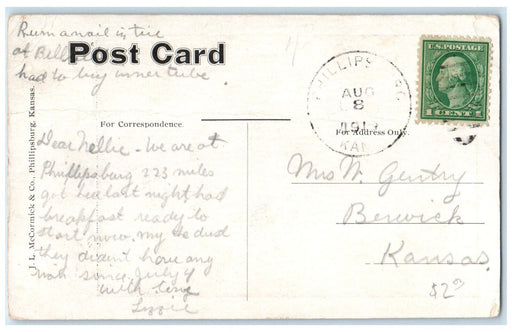 Run a nail in tire
at Bell
had to buy inner tube
Post Card
U.S. POSTAGE
1 CENT 1
PHILLIPSBURG
AUG
8
191
KAN
For Correspondence
For Address Only.
J. L. McCormick & Co., Phillipsburg, Kansas.
Dear Nellie - We are at
Phillipsburg 223 miles
got here last night, had
breakfast ready to
start now. My he dust
they dizen't have any
rain since July 4
with love
Lizzie
Mrs W. Gentry
Berwick
Kansas.
$2